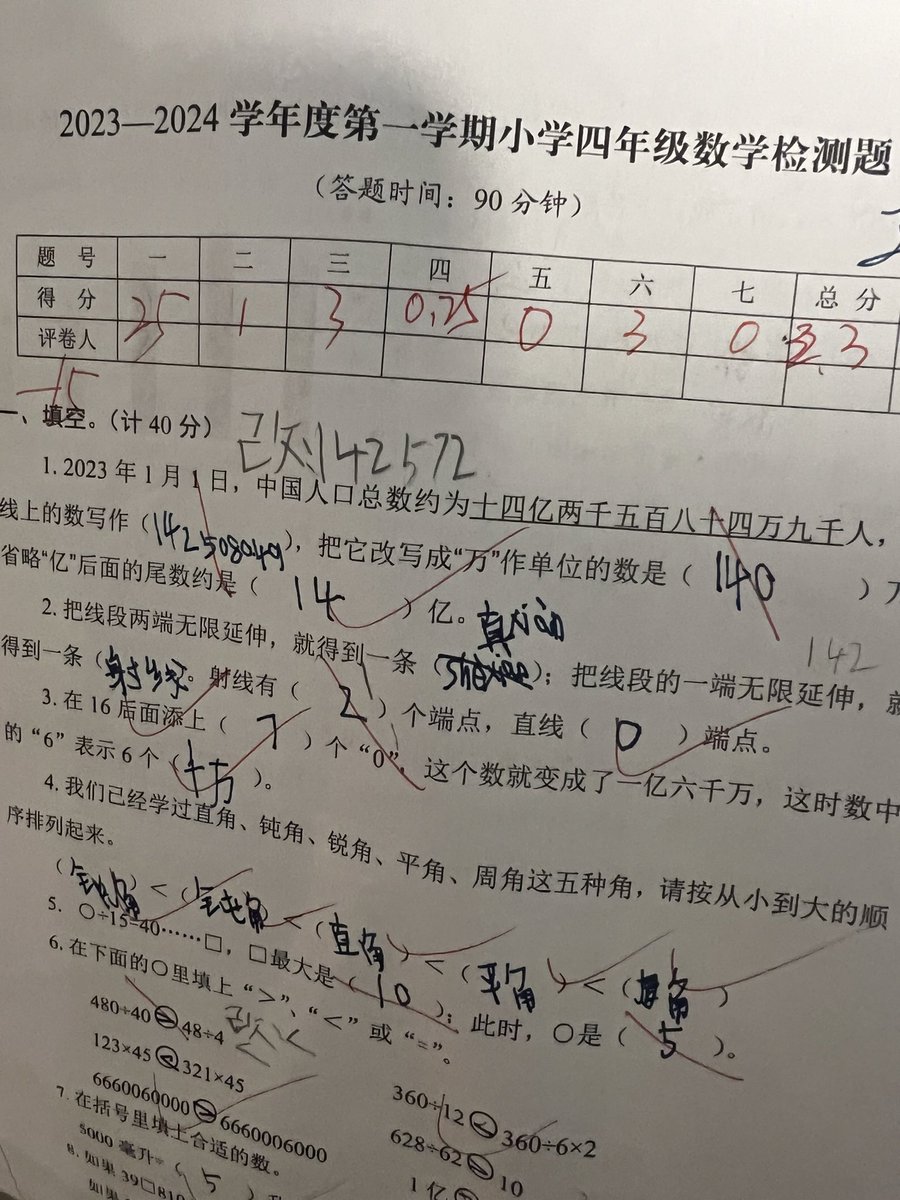 2023—2024 学年度第一学期小学四年级数学检测题
（答题时间：90 分钟）
题 号 一 二 三 四 五 六 七 总 分
得 分 25 1 3 0.25 0 3 0 3
评卷人
-15
一、填空。（计 40 分）
142572
1. 2023 年 1 月 1 日，中国人口总数约为十四亿两千五百八十四万九千人，
线上的数写作（），把它改写成“万”作单位的数是（ 140 ）万
省略“亿”后面的尾数约是（ 14 ）亿。
直xiàn
142
2. 把线段两端无限延伸，就得到一条（）；把线段的一端无限延伸，就
得到一条（射线）。射线有（ 2 ）个端点，直线（ 0 ）端点。
3. 在 16 后面添上（ 7 ）个“0”，这个数就变成了一亿六千万，这时数中
的“6”表示 6 个（千万）。
4. 我们已经学过直角、钝角、锐角、平角、周角这五种角，请按从小到大的顺
序排列起来。
（角）＜（钝角）＜（直角）＜（平角）＜（角）
5. ○÷15=40……□，□最大是（ 10 ）；此时，○是（ 5 ）。
6. 在下面的○里填上“＞”、“＜”或“=”。
480÷40 48÷4 360÷12 ＜ 360÷6×2
123×45 ＜ 321×45 628÷62 10
6660060000 ＞ 6660006000 1 亿
7. 在括号里填上合适的数。
5000 毫升=（ 5 ）
8. 如果 39□810
如果